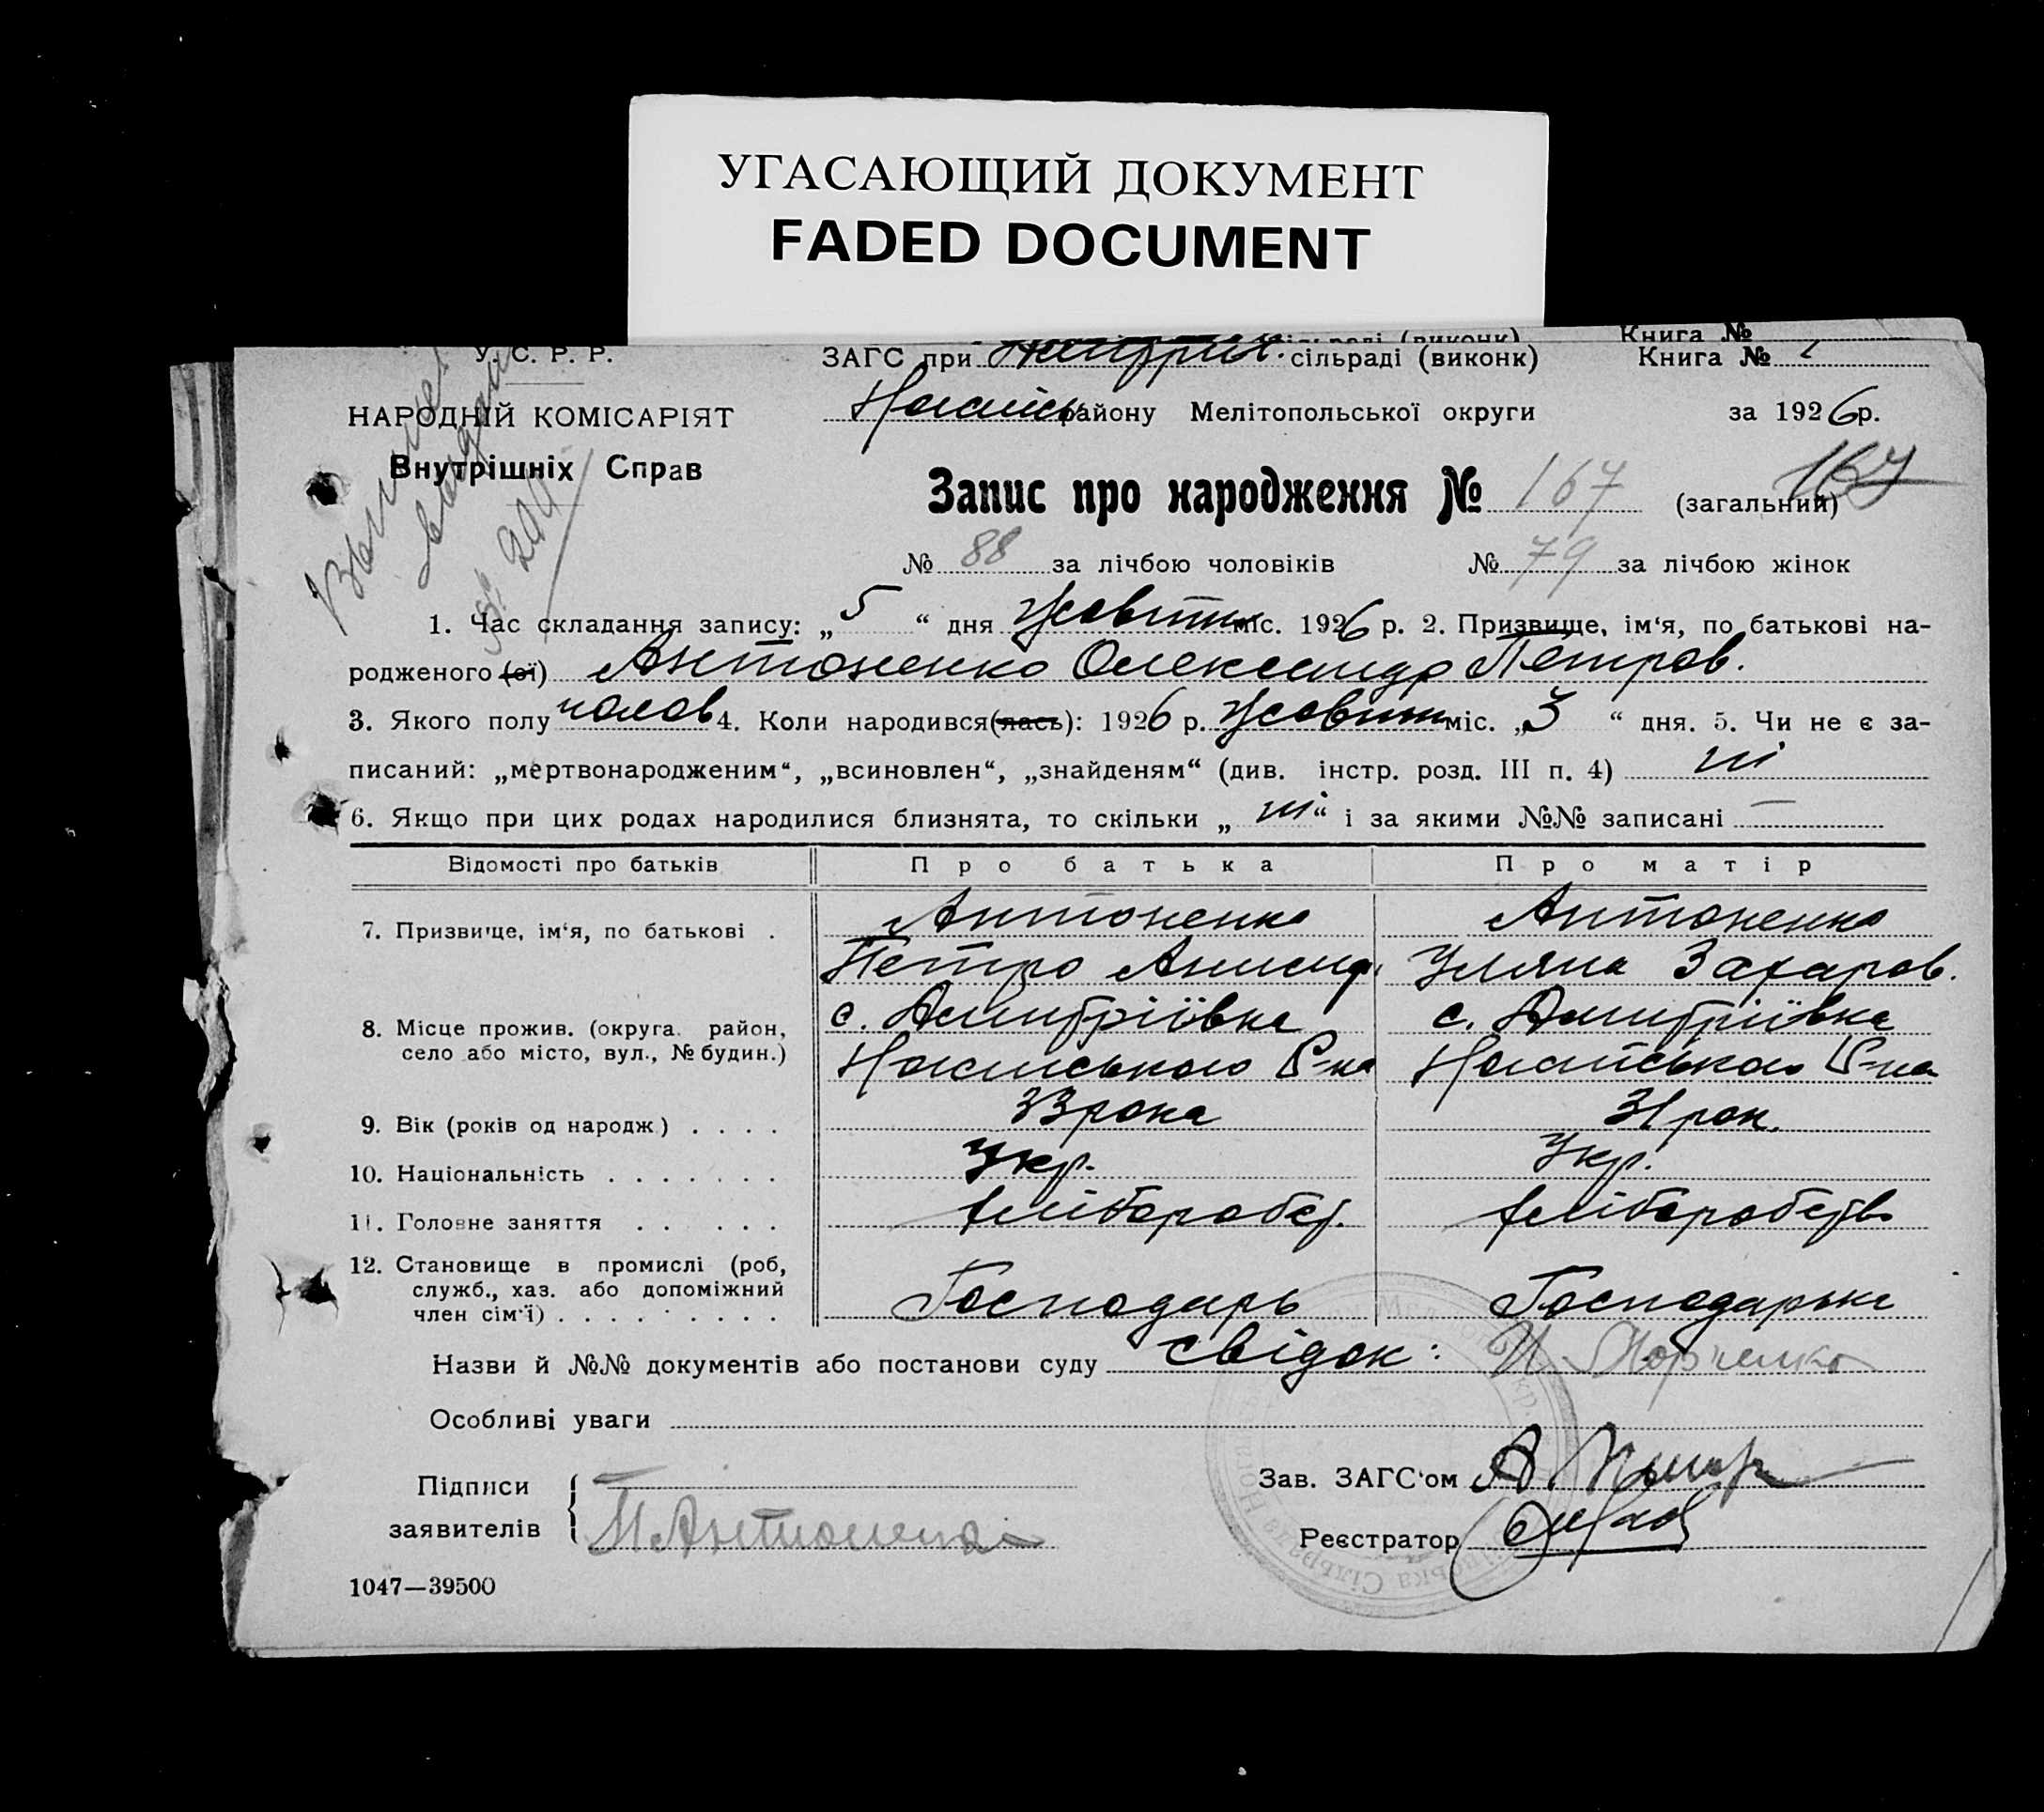 УГАСАЮЩИЙ ДОКУМЕНТ
FADED DOCUMENT
Книга №
У. С. Р. Р. ЗАГС при сільраді (виконк) Книга №
НАРОДНІЙ КОМІСАРІЯТ району Мелітопольської округи за 1926 р.
Внутрішніх Справ
Запис про народження № 167 (загальний) 167
№ 88 за лічбою чоловіків № 79 за лічбою жінок
1. Час складання запису: „5“ дня Жовтн міс. 1926 р. 2. Призвище, ім‘я, по батькові на-
родженого (ої) Антоненко Олександр Петров.
3. Якого полу чолов 4. Коли народився(лась): 1926 р. Жовтн міс. „3“ дня. 5. Чи не є за-
писаний: „мертвонародженим“, „всиновлен“, „знайденям“ (див. інстр. розд. III п. 4) ні
6. Якщо при цих родах народилися близнята, то скільки „ні“ і за якими №№ записані —
Відомості про батьків Про батька Про матір
7. Призвище, ім‘я, по батькові . Антоненко Антоненко
Петро Уляна Захаров.
8. Місце прожив. (округа, район, с. Дмитріївка с. Дмитріївка
село або місто, вул., № будин.) Р-на Р-на
9. Вік (років од народж.) . . . . 33 рока 31 рок.
10. Національність . . . . . . . Укр. Укр.
11. Головне заняття . . . . . хлібороб
12. Становище в промислі (роб,
служб., хаз. або допоміжний Господарь Господарька
член сім‘ї) . . . . . . . . .
Назви й №№ документів або постанови суду свідок:
Особливі уваги
Підписи Зав. ЗАГС‘ом
заявителів Антоненко Реєстратор
1047—39500